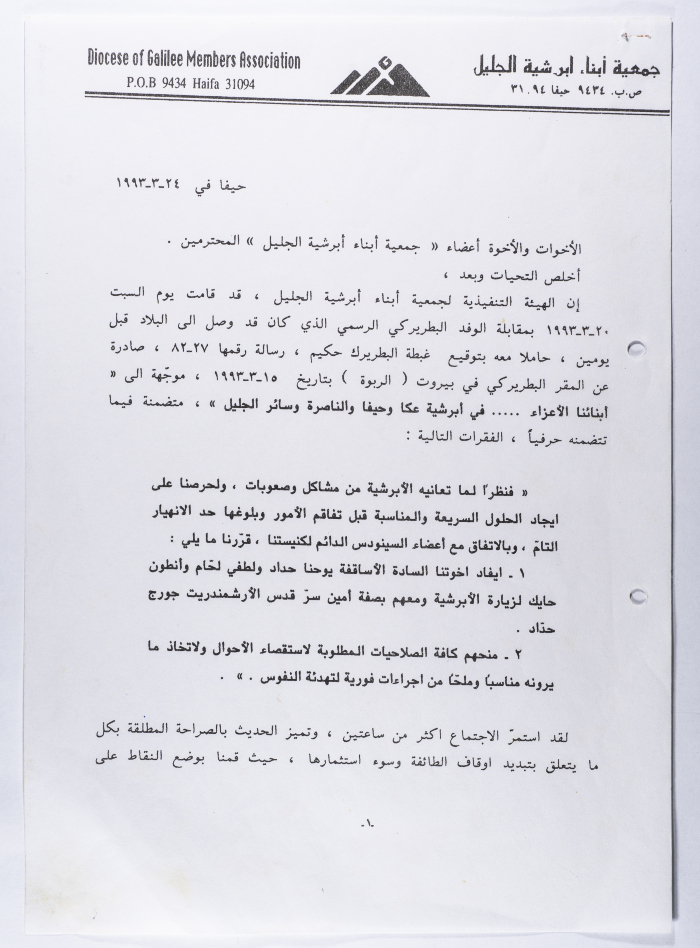 Diocese of Galilee Members Association
P.O.B 9434 Haifa 31094
جمعية أبناء أبرشية الجليل
ص.ب. ٩٤٣٤ حيفا ٣١.٩٤
حيفا في ٢٤-٣-١٩٩٣
الأخوات والأخوة أعضاء « جمعية أبناء أبرشية الجليل » المحترمين .
أخلص التحيات وبعد ،
إن الهيئة التنفيذية لجمعية أبناء أبرشية الجليل ، قد قامت يوم السبت
٢٠-٣-١٩٩٣ بمقابلة الوفد البطريركي الرسمي الذي كان قد وصل الى البلاد قبل
يومين ، حاملا معه بتوقيع غبطة البطريرك حكيم ، رسالة رقمها ٢٧-٨٢ ، صادرة
عن المقر البطريركي في بيروت ( الربوة ) بتاريخ ١٥-٣-١٩٩٣ ، موجّهة الى «
أبنائنا الأعزاء ..... في أبرشية عكا وحيفا والناصرة وسائر الجليل » ، متضمنة فيما
تتضمنه حرفياً ، الفقرات التالية :
« فنظراً لما تعانيه الأبرشية من مشاكل وصعوبات ، ولحرصنا على
ايجاد الحلول السريعة والمناسبة قبل تفاقم الأمور وبلوغها حد الانهيار
التامّ ، وبالاتفاق مع أعضاء السينودس الدائم لكنيستنا ، قرّرنا ما يلي :
١ - ايفاد اخوتنا السادة الأساقفة يوحنا حداد ولطفي لحّام وأنطون
حايك لزيارة الأبرشية ومعهم بصفة أمين سرّ قدس الأرشمندريت جورج
حدّاد .
٢ - منحهم كافة الصلاحيات المطلوبة لاستقصاء الأحوال ولاتخاذ ما
يرونه مناسبًا وملحًا من اجراءات فورية لتهدئة النفوس . » .
لقد استمرّ الاجتماع اكثر من ساعتين ، وتميز الحديث بالصراحة المطلقة بكل
ما يتعلق بتبديد اوقاف الطائفة وسوء استثمارها ، حيث قمنا بوضع النقاط على
-١-